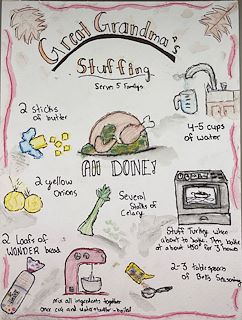 Great Grandma's
Stuffing
Serves 5 Familys
2 sticks
of butter
4-5 cups
of water
All DONE!
2 yellow
onions
Several
Stalks of
Celery
Stuff Turkey when
about to bake. Then bake
at about 450° for 3 hours
2 Loafs of
WONDER bread
2-3 tablespoons
of Bells Seasoning
Mix all ingredients together
once cut and water + butter is boiled